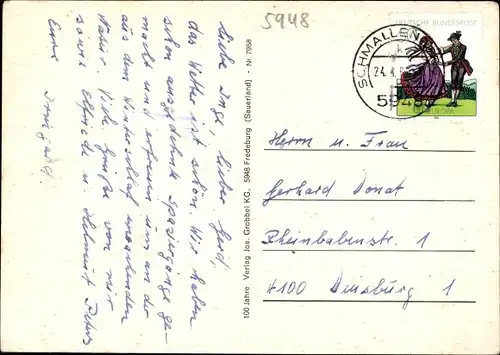 5948
Liebe Inge, lieber Gerd,
das Wetter ist schön. Wir haben
schon ausgedehnte Spaziergänge ge-
macht und erfreuen uns an der
aus dem Winterschlaf erwachenden
Natur. Viele Grüße von mir
sowie Elfriede u. Helmut
Eure Irmgard.
100 Jahre Verlag Jos. Grobbel KG., 5948 Fredeburg (Sauerland) - Nr. 7958
DEUTSCHE BUNDESPOST
EUROPA
SCHMALLEN
24.4.8
5948
Herrn u. Frau
Gerhard Donat
Rheinbabenstr. 1
4100 Duisburg 1